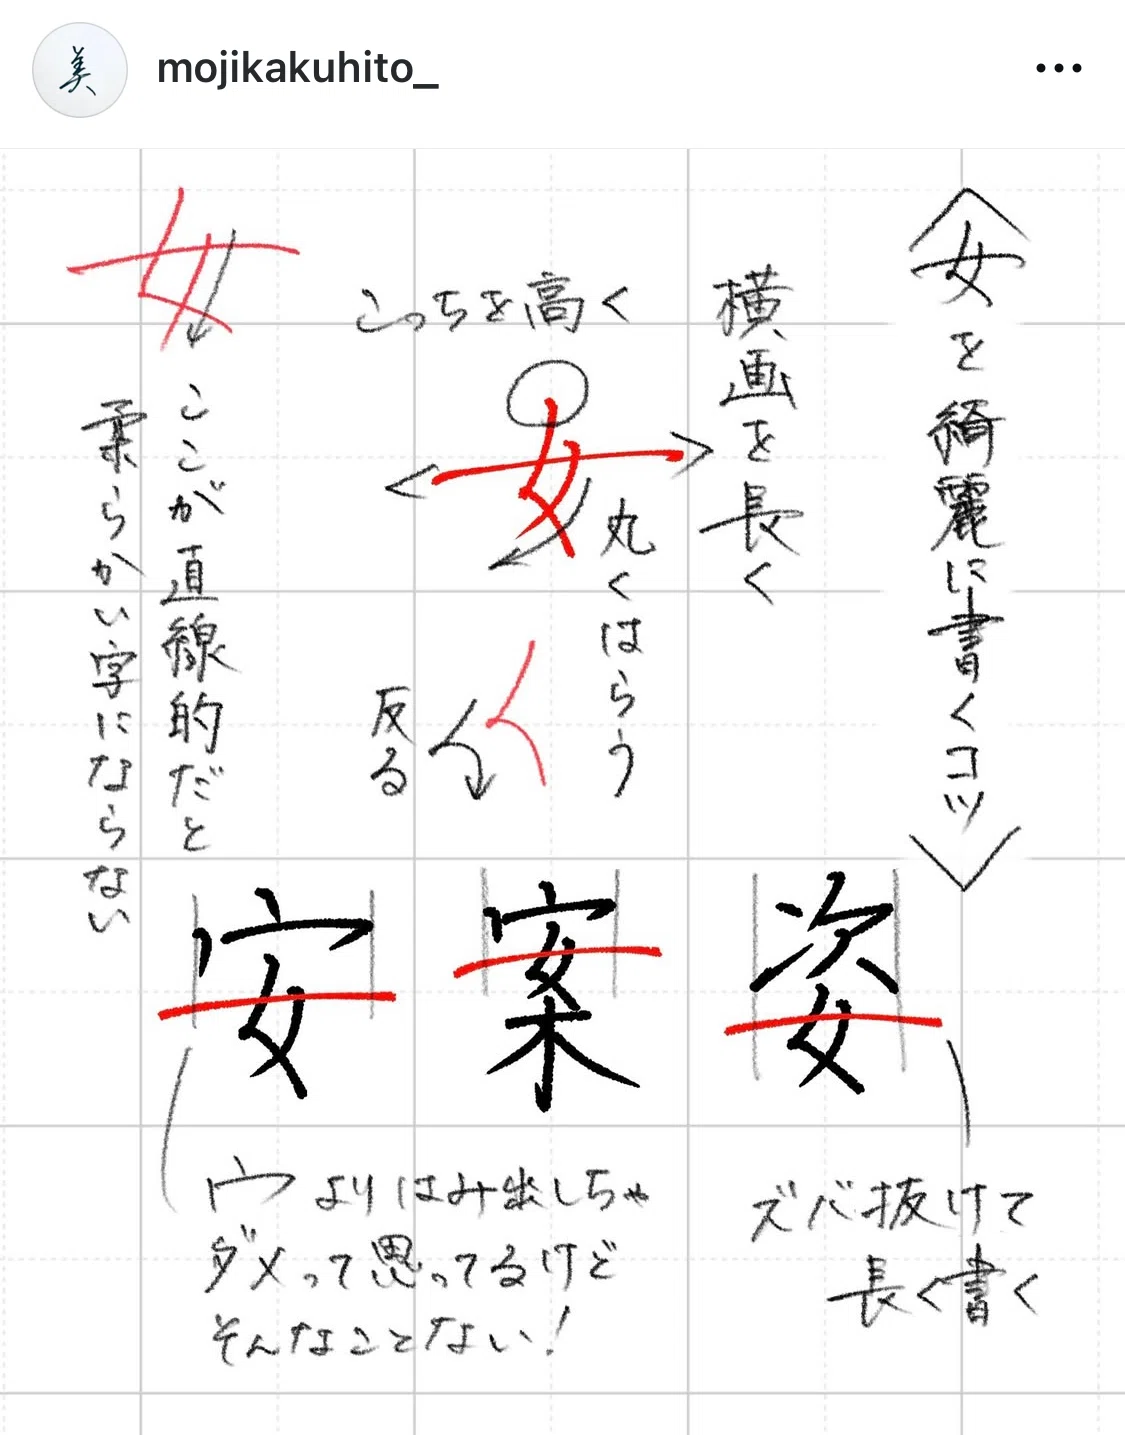 美
mojikakuhito_
女を綺麗に書くコツ
横画を長く
こっちを高く
女
丸くはらう
反る
女
ここが直線的だと
柔らかい字にならない
姿
案
安
ズバ抜けて
長く書く
宀よりはみ出しちゃ
ダメって思ってるけど
そんなことない!